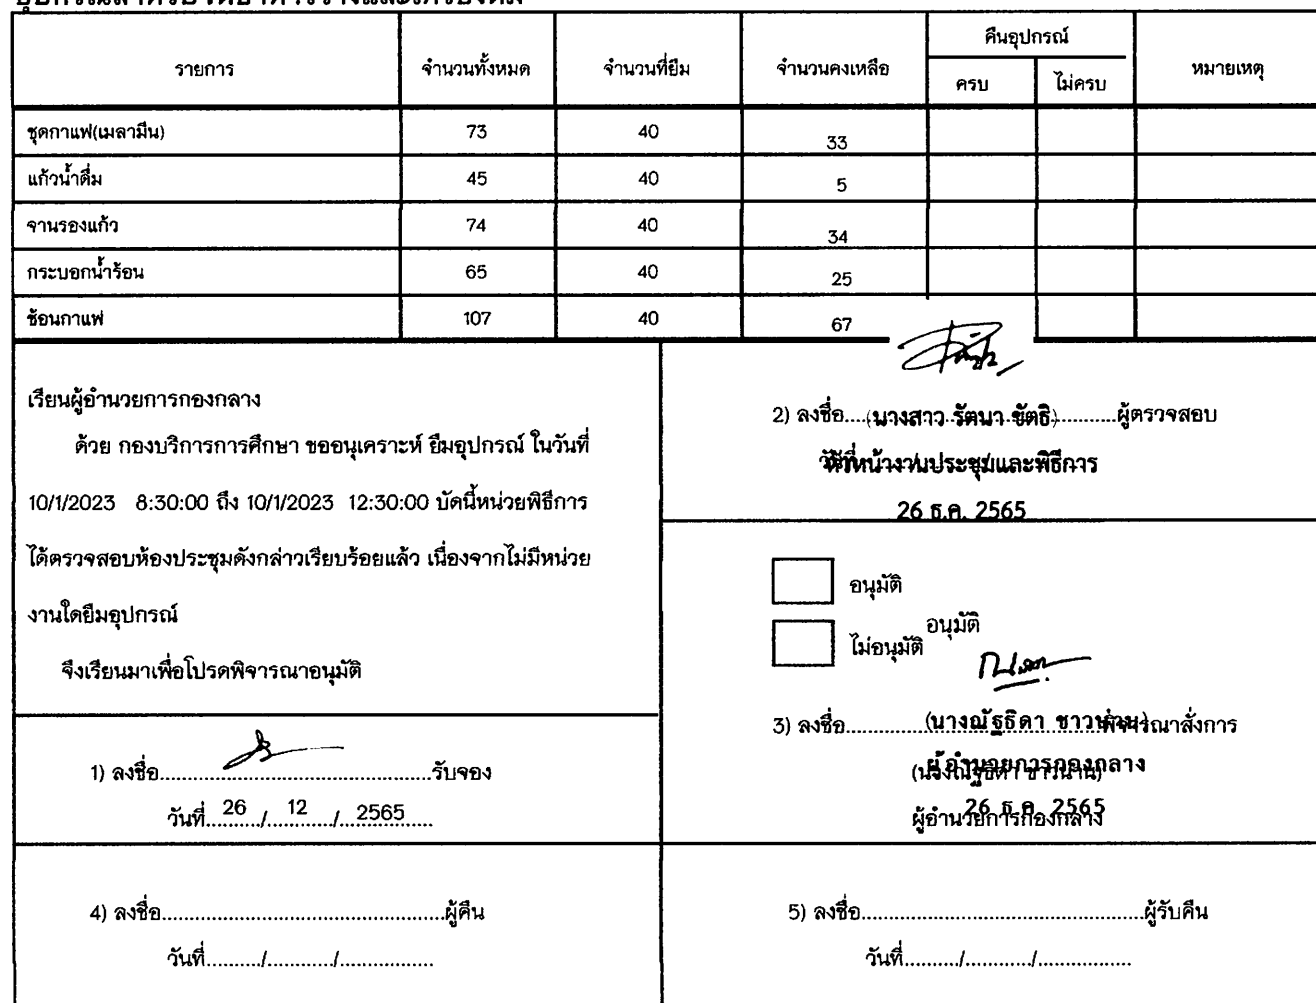 รายการ จำนวนทั้งหมด จำนวนที่ยืม จำนวนคงเหลือ คืนอุปกรณ์ หมายเหตุ
ครบ ไม่ครบ
ชุดกาแฟ(เมลามีน) 73 40 33
แก้วน้ำดื่ม 45 40 5
จานรองแก้ว 74 40 34
กระบอกน้ำร้อน 65 40 25
ช้อนกาแฟ 107 40 67
เรียนผู้อำนวยการกองกลาง
ด้วย กองบริการการศึกษา ขออนุเคราะห์ ยืมอุปกรณ์ ในวันที่
10/1/2023 8:30:00 ถึง 10/1/2023 12:30:00 บัดนี้หน่วยพิธีการ
ได้ตรวจสอบห้องประชุมดังกล่าวเรียบร้อยแล้ว เนื่องจากไม่มีหน่วย
งานใดยืมอุปกรณ์
จึงเรียนมาเพื่อโปรดพิจารณาอนุมัติ
1) ลงชื่อ..................................................รับจอง
วันที่...26.../...12.../...2565......
2) ลงชื่อ....(นางสาว รัตนา ขัตธิ)...........ผู้ตรวจสอบ
หัวหน้างานประชุมและพิธีการ
26 ธ.ค. 2565
อนุมัติ
ไม่อนุมัติ
อนุมัติ
3) ลงชื่อ...............(นางณัฐธิดา ชาวน่าน)พิจารณาสั่งการ
ผู้อำนวยการกองกลาง
(นางณัฐธิดา ชาวน่าน)
26 ธ.ค. 2565
ผู้อำนวยการกองกลาง
4) ลงชื่อ....................................................ผู้คืน
วันที่........../............/.................
5) ลงชื่อ....................................................ผู้รับคืน
วันที่........../............/.................